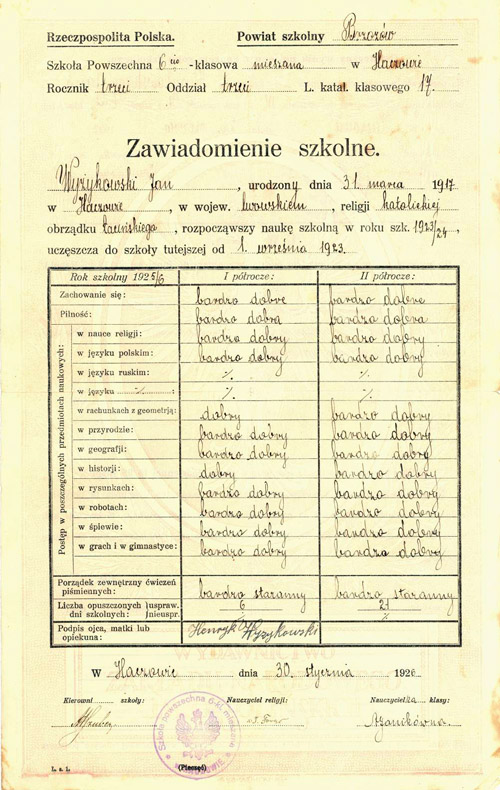 Rzeczpospolita Polska. Powiat szkolny Brzozów
Szkoła Powszechna 6cio -klasowa mieszana w Haczowie
Rocznik trzeci Oddział trzeci L. katal. klasowego 17.
Zawiadomienie szkolne.
Wyżykowski Jan, urodzony dnia 31. marca 1917
w Haczowie, w wojew. lwowskiem, religji katolickiej
obrządku łacińskiego, rozpocząwszy naukę szkolną w roku szk. 1923/24,
uczęszcza do szkoły tutejszej od 1. września 1923.
Rok szkolny 1925/6 I półrocze: II półrocze:
Zachowanie się: bardzo dobre bardzo dobre
Pilność: bardzo dobra bardzo dobra
Postęp w poszczególnych przedmiotach naukowych:
w nauce religji: bardzo dobry bardzo dobry
w języku polskim: bardzo dobry bardzo dobry
w języku ruskim: ·/. ·/.
w języku ·/. : ·/. ·/.
w rachunkach z geometrją: dobry bardzo dobry
w przyrodzie: bardzo dobry bardzo dobry
w geografji: bardzo dobry bardzo dobry
w historji: dobry bardzo dobry
w rysunkach: bardzo dobry bardzo dobry
w robotach: bardzo dobry bardzo dobry
w śpiewie: bardzo dobry bardzo dobry
w grach i w gimnastyce: bardzo dobry bardzo dobry
Porządek zewnętrzny ćwiczeń
piśmiennych: bardzo staranny bardzo staranny
Liczba opuszczonych uspraw. 6 21
dni szkolnych: nieuspr. ·/.
Podpis ojca, matki lub
opiekuna: Henryk Wyżykowski
WYDAWNICTWO
W Haczowie dnia 30. stycznia 1926
Kierowni szkoły: Nauczyciel religji: Nauczycielka klasy:
Szkoła powszechna 6-kl. mieszana
W HACZOWIE
L. s. 1. (Pieczęć)